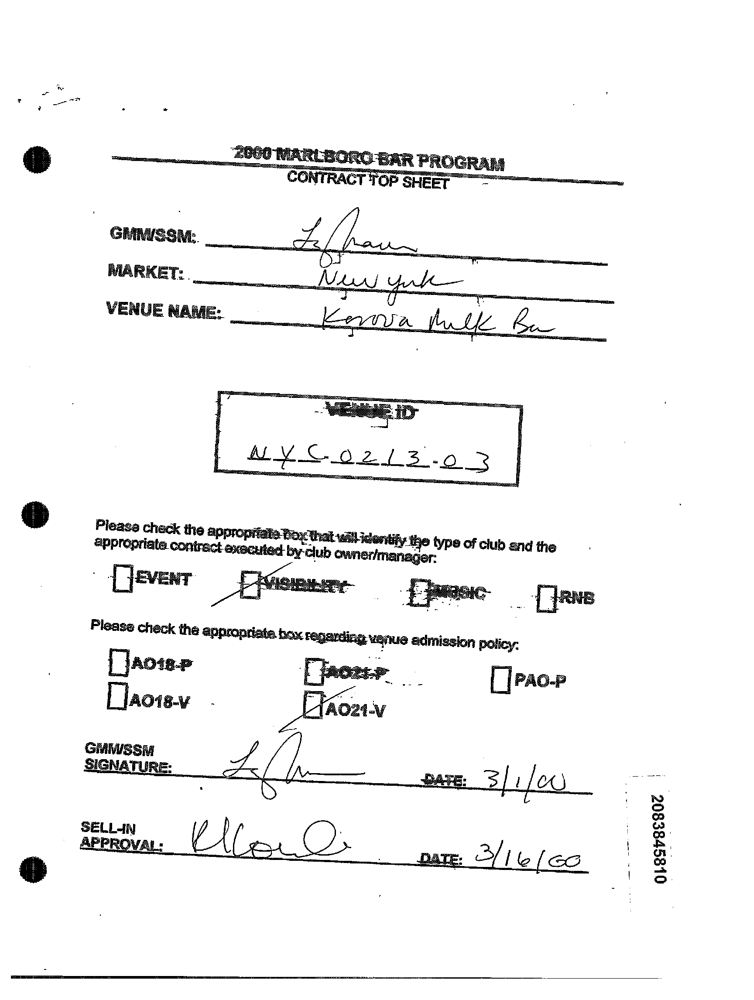 2000 MARLBORO BAR PROGRAM
CONTRACT TOP SHEET
GMM/SSM:
MARKET: New York
VENUE NAME: Korova Milk Bar
VENUE ID
NYC-0213-03
Please check the appropriate box that will identify the type of club and the
appropriate contract executed by club owner/manager:
EVENT VISIBILITY MUSIC RNB
Please check the appropriate box regarding venue admission policy:
AO18-P AO21-P PAO-P
AO18-V AO21-V
GMM/SSM
SIGNATURE: DATE: 3/1/00
SELL-IN
APPROVAL: DATE: 3/16/00
2083845810